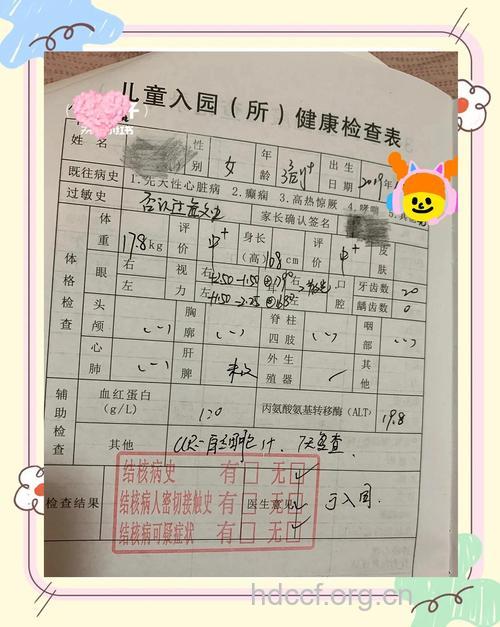 儿童入园（所）健康检查表
姓名 性别 女 年龄 3岁 出生日期 2019
既往病史 1.先天性心脏病 2.癫痫 3.高热惊厥 4.哮喘 5.其他
过敏史 否认过敏史 家长确认签名
体格检查 体重 17.8kg 评价 中+ 身长(高) 108cm 评价 中+ 皮肤
眼 右 左 视力 右 +2.50 -1.50 左 +1.50 -2.25 耳 右 左 口腔 牙齿数 20 龋齿数 0
头颅 (-) 胸廓 (-) 脊柱四肢 (-) 咽部 (-)
心肺 (-) 肝脾 未及 外生殖器 / 其他
辅助检查 血红蛋白(g/L) 120 丙氨酸氨基转移酶(ALT) 19.8
其他
检查结果 医生意见 可入园.
结核病史 有□ 无☑
结核病人密切接触史 有□ 无☑
结核病可疑症状 有□ 无☑
hdccf.org.cn